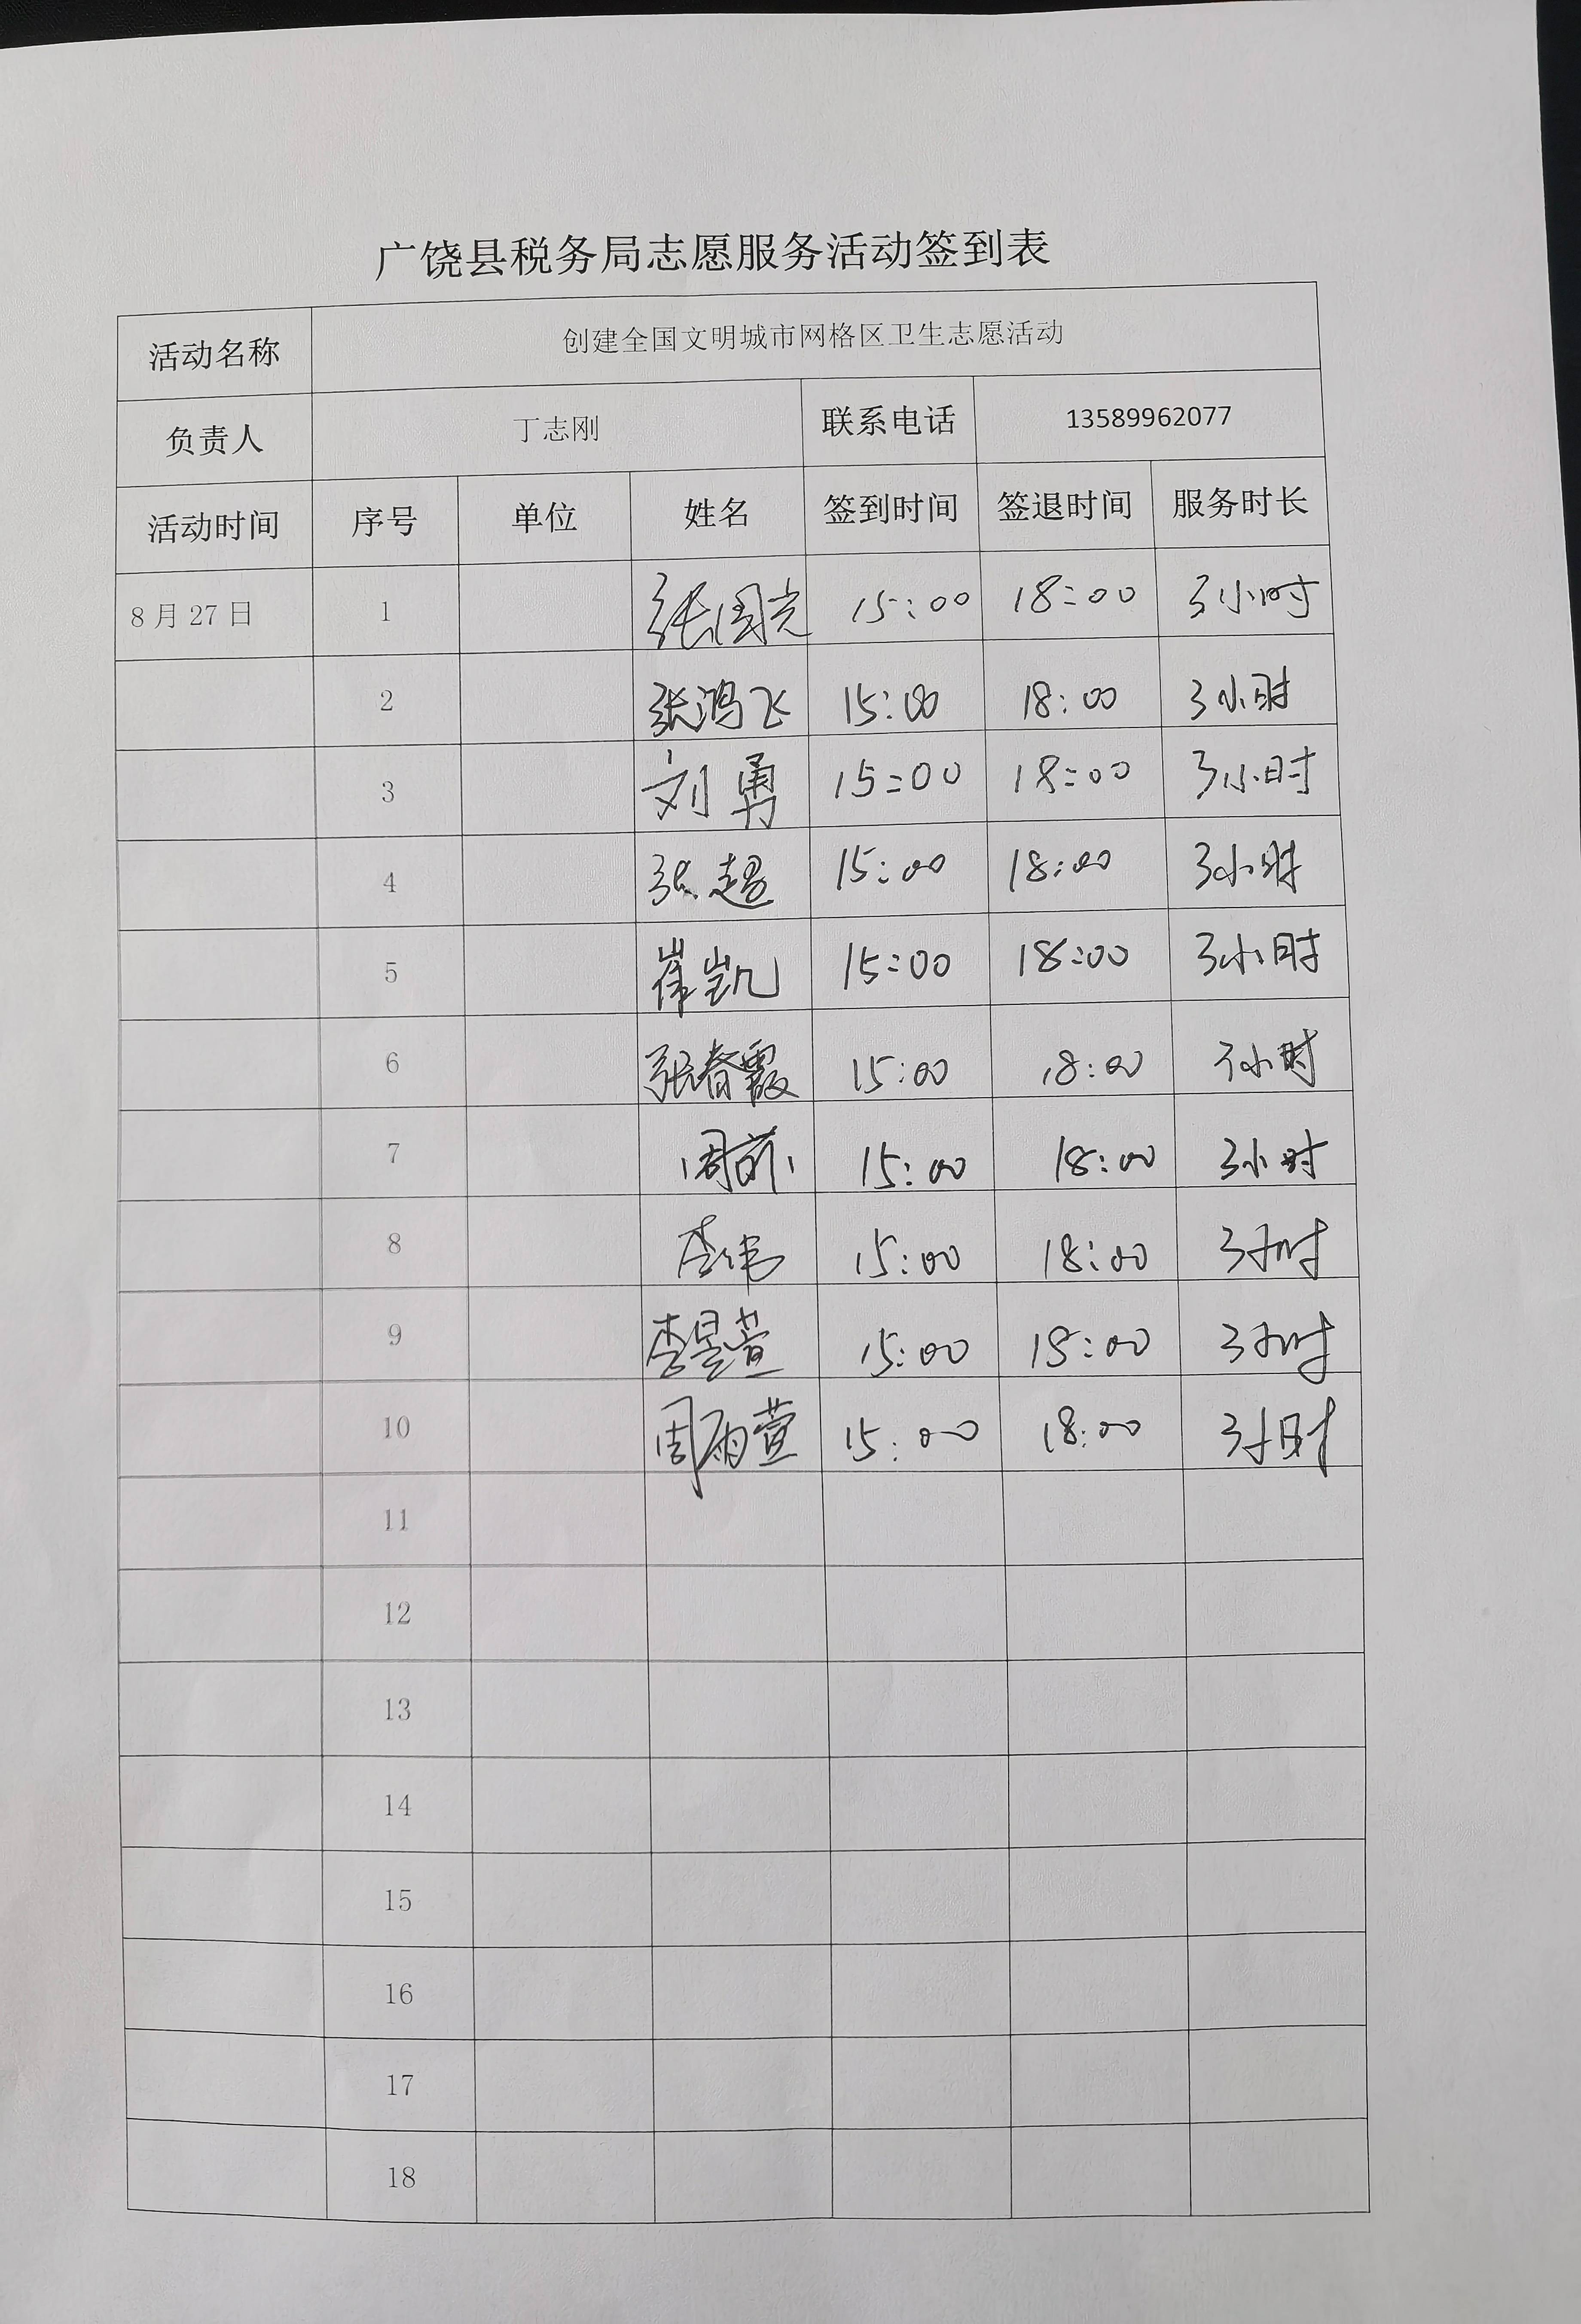 广饶县税务局志愿服务活动签到表
活动名称 创建全国文明城市网格区卫生志愿活动
负责人 丁志刚 联系电话 13589962077
活动时间 序号 单位 姓名 签到时间 签退时间 服务时长
8月27日 1 张国光 15:00 18:00 3小时
2 张鸿飞 15:00 18:00 3小时
3 刘勇 15:00 18:00 3小时
4 张超 15:00 18:00 3小时
5 崔凯 15:00 18:00 3小时
6 张春霞 15:00 18:00 3小时
7 15:00 18:00 3小时
8 李伟 15:00 18:00 3小时
9 李昱萱 15:00 18:00 3小时
10 周雨萱 15:00 18:00 3小时
11
12
13
14
15
16
17
18